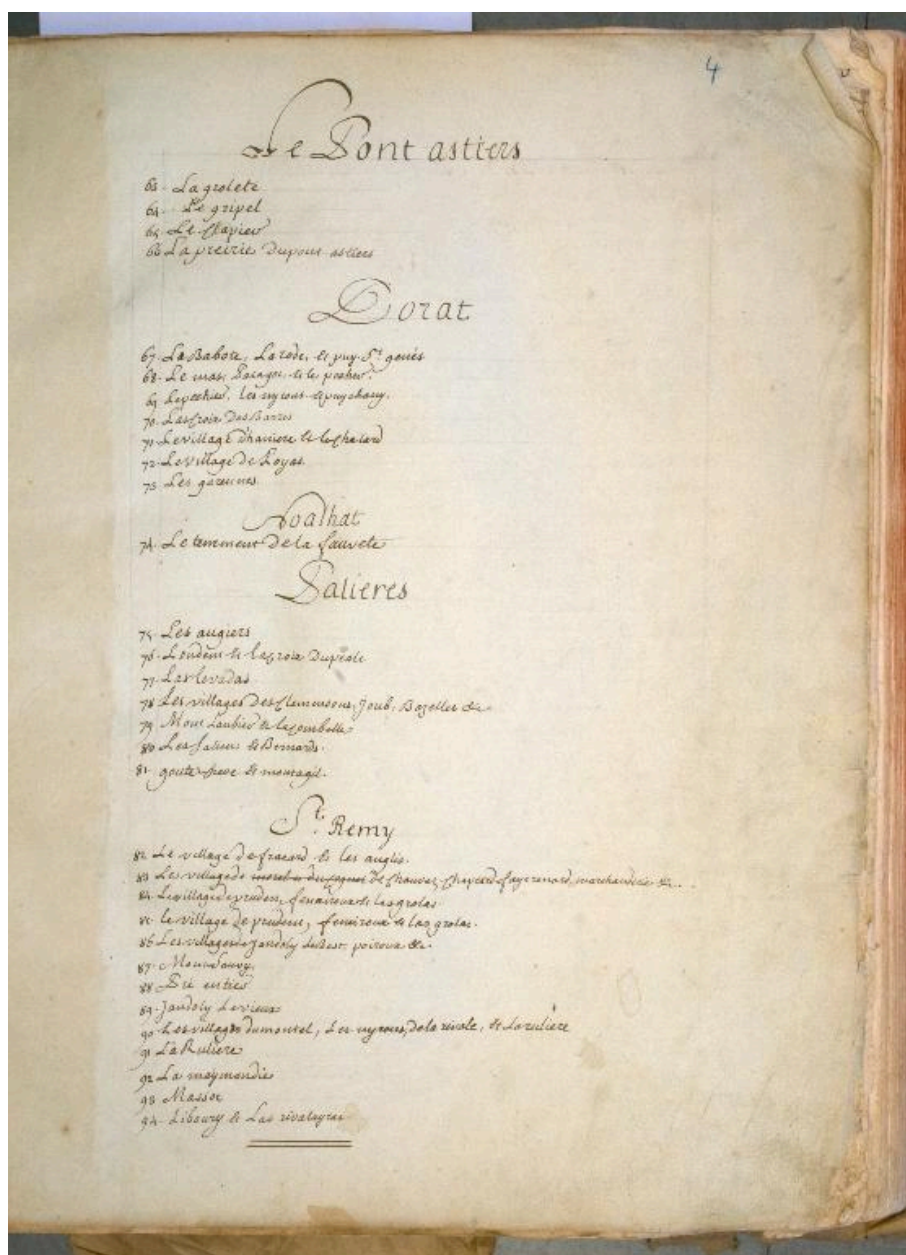 4
Le Pont astiers
63. La grolete
64. Le gripel
65. Le Clapier
66 La preirie Dupont astiers
Dorat
67. La Babote, La rode, & puy St. genés
68. Le mas, & le pocher
69 les nyrons & puychany.
70. La Croix Des Barres
71. Le village & le Chalard
72. Le village de Royas
73. Les garennes
Noalhat
74. Le tennement De la fauvete
Palieres
75. Les augiers
76. & la Croix Dupeale
77. Las levadas
78 Les villages Des Clemensons, Joub, Bazelles &c.
79. Mont Laubier & la Combelle
80 Les & Bernards.
81. goute & montagil.
St. Remy
82. Le village de fracard & les anglis.
83 Les villages de De Chouvet, Chapterd, faye renard, marchandie &c.
84. Le village de prudent, & las grolas
85. le village De prudent, & las grolas.
86 Les villages de Jandoly, poiroux &c.
87.
88 Pré entier
89. Jandoly Levieux
90 Les villages dumontel, Les nyrons, De la rivole, & La ruliere
91 La Ruliere
92 La maymondie
93 Massoc
94. Liboury & Las rivaleyras